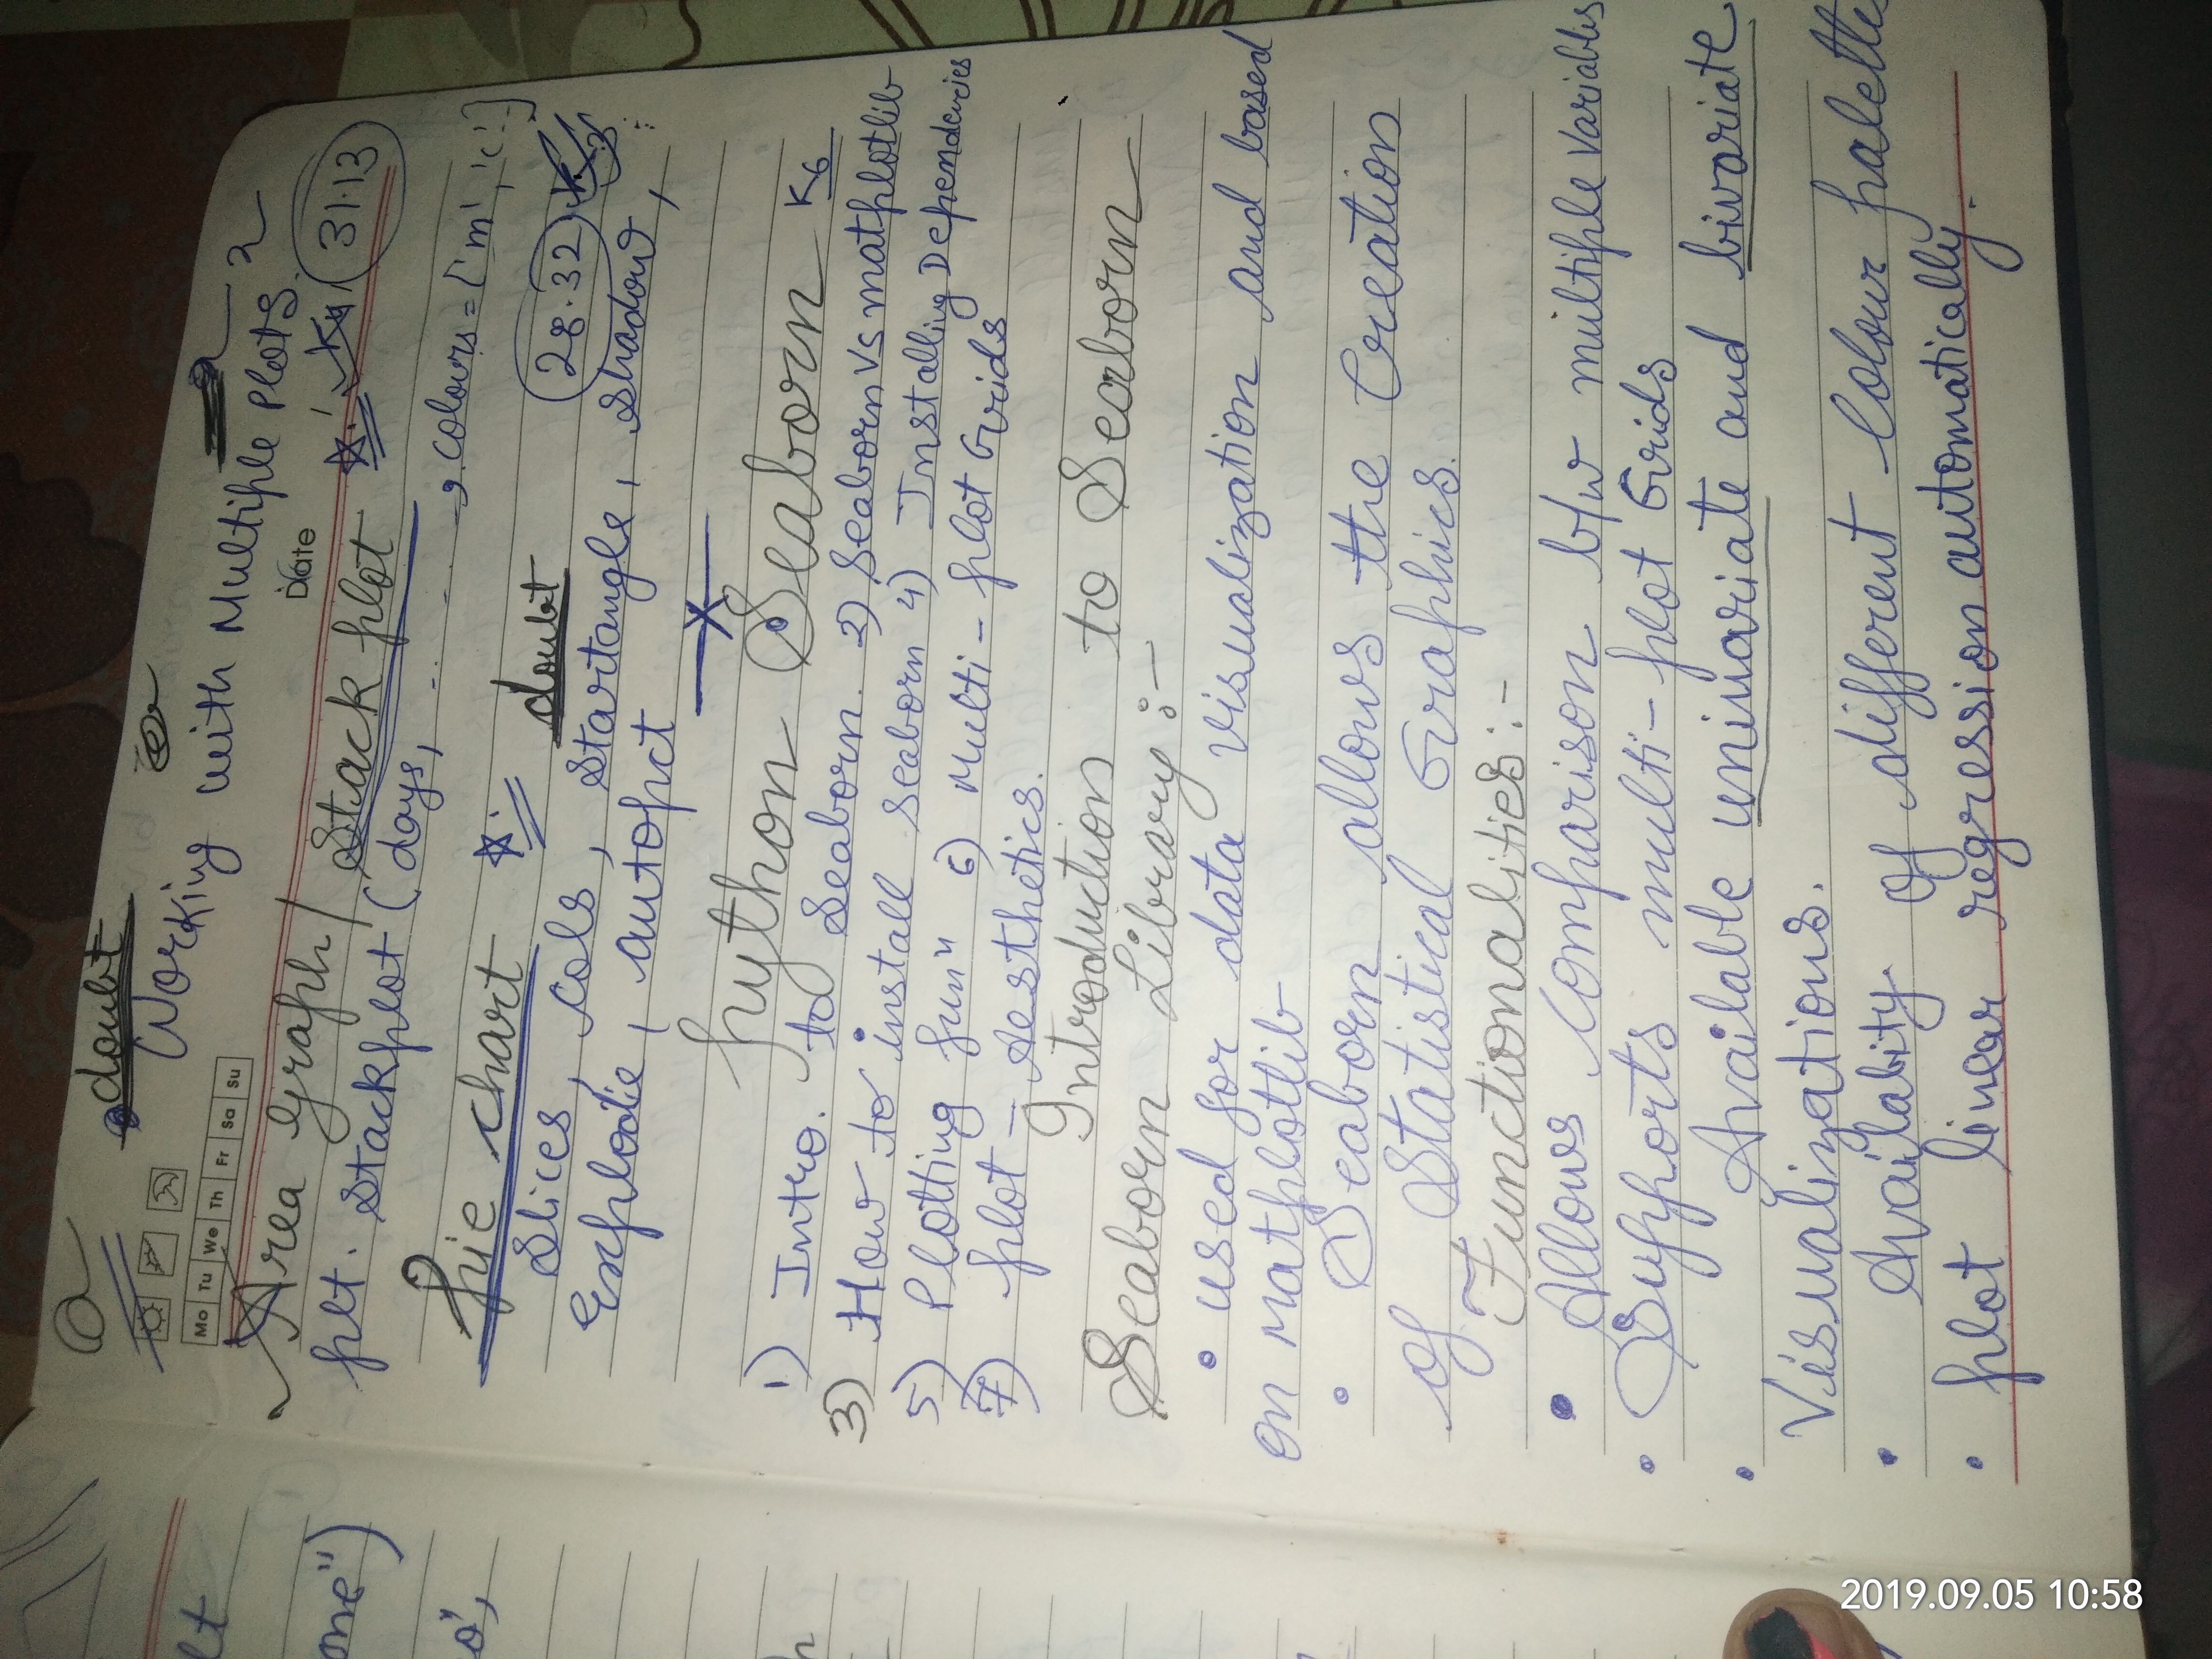 doubt
Working with Multiple Plots.
Date
Mo Tu We Th Fr Sa Su
Area Graph / Stack plot 31.13
plt. stackplot (days, ... , colours = ['m', 'c'.]
Pie chart doubt 28.32
Slices, cols, startangle, shadow,
Explode, autopct
Python Seaborn K6
1) Intro. to Seaborn. 2) Seaborn Vs matplotlib
3) How to install seaborn 4) Installing Dependencies
5) Plotting funⁿ 6) Multi-plot Grids
7) plot - Aesthetics.
Introduction to Seaborn
Seaborn Library :-
• used for data visualization and based
on matplotlib
• Seaborn allows the Creation
of Statistical Graphics.
Functionalities :-
• Allows comparison b/w multiple variables
• Supports multi-plot Grids
• Available univariate and bivariate
Visualizations.
• Availability of different colour palettes
• plot linear regression automatically.
lt
ome")
o',
2019.09.05 10:58